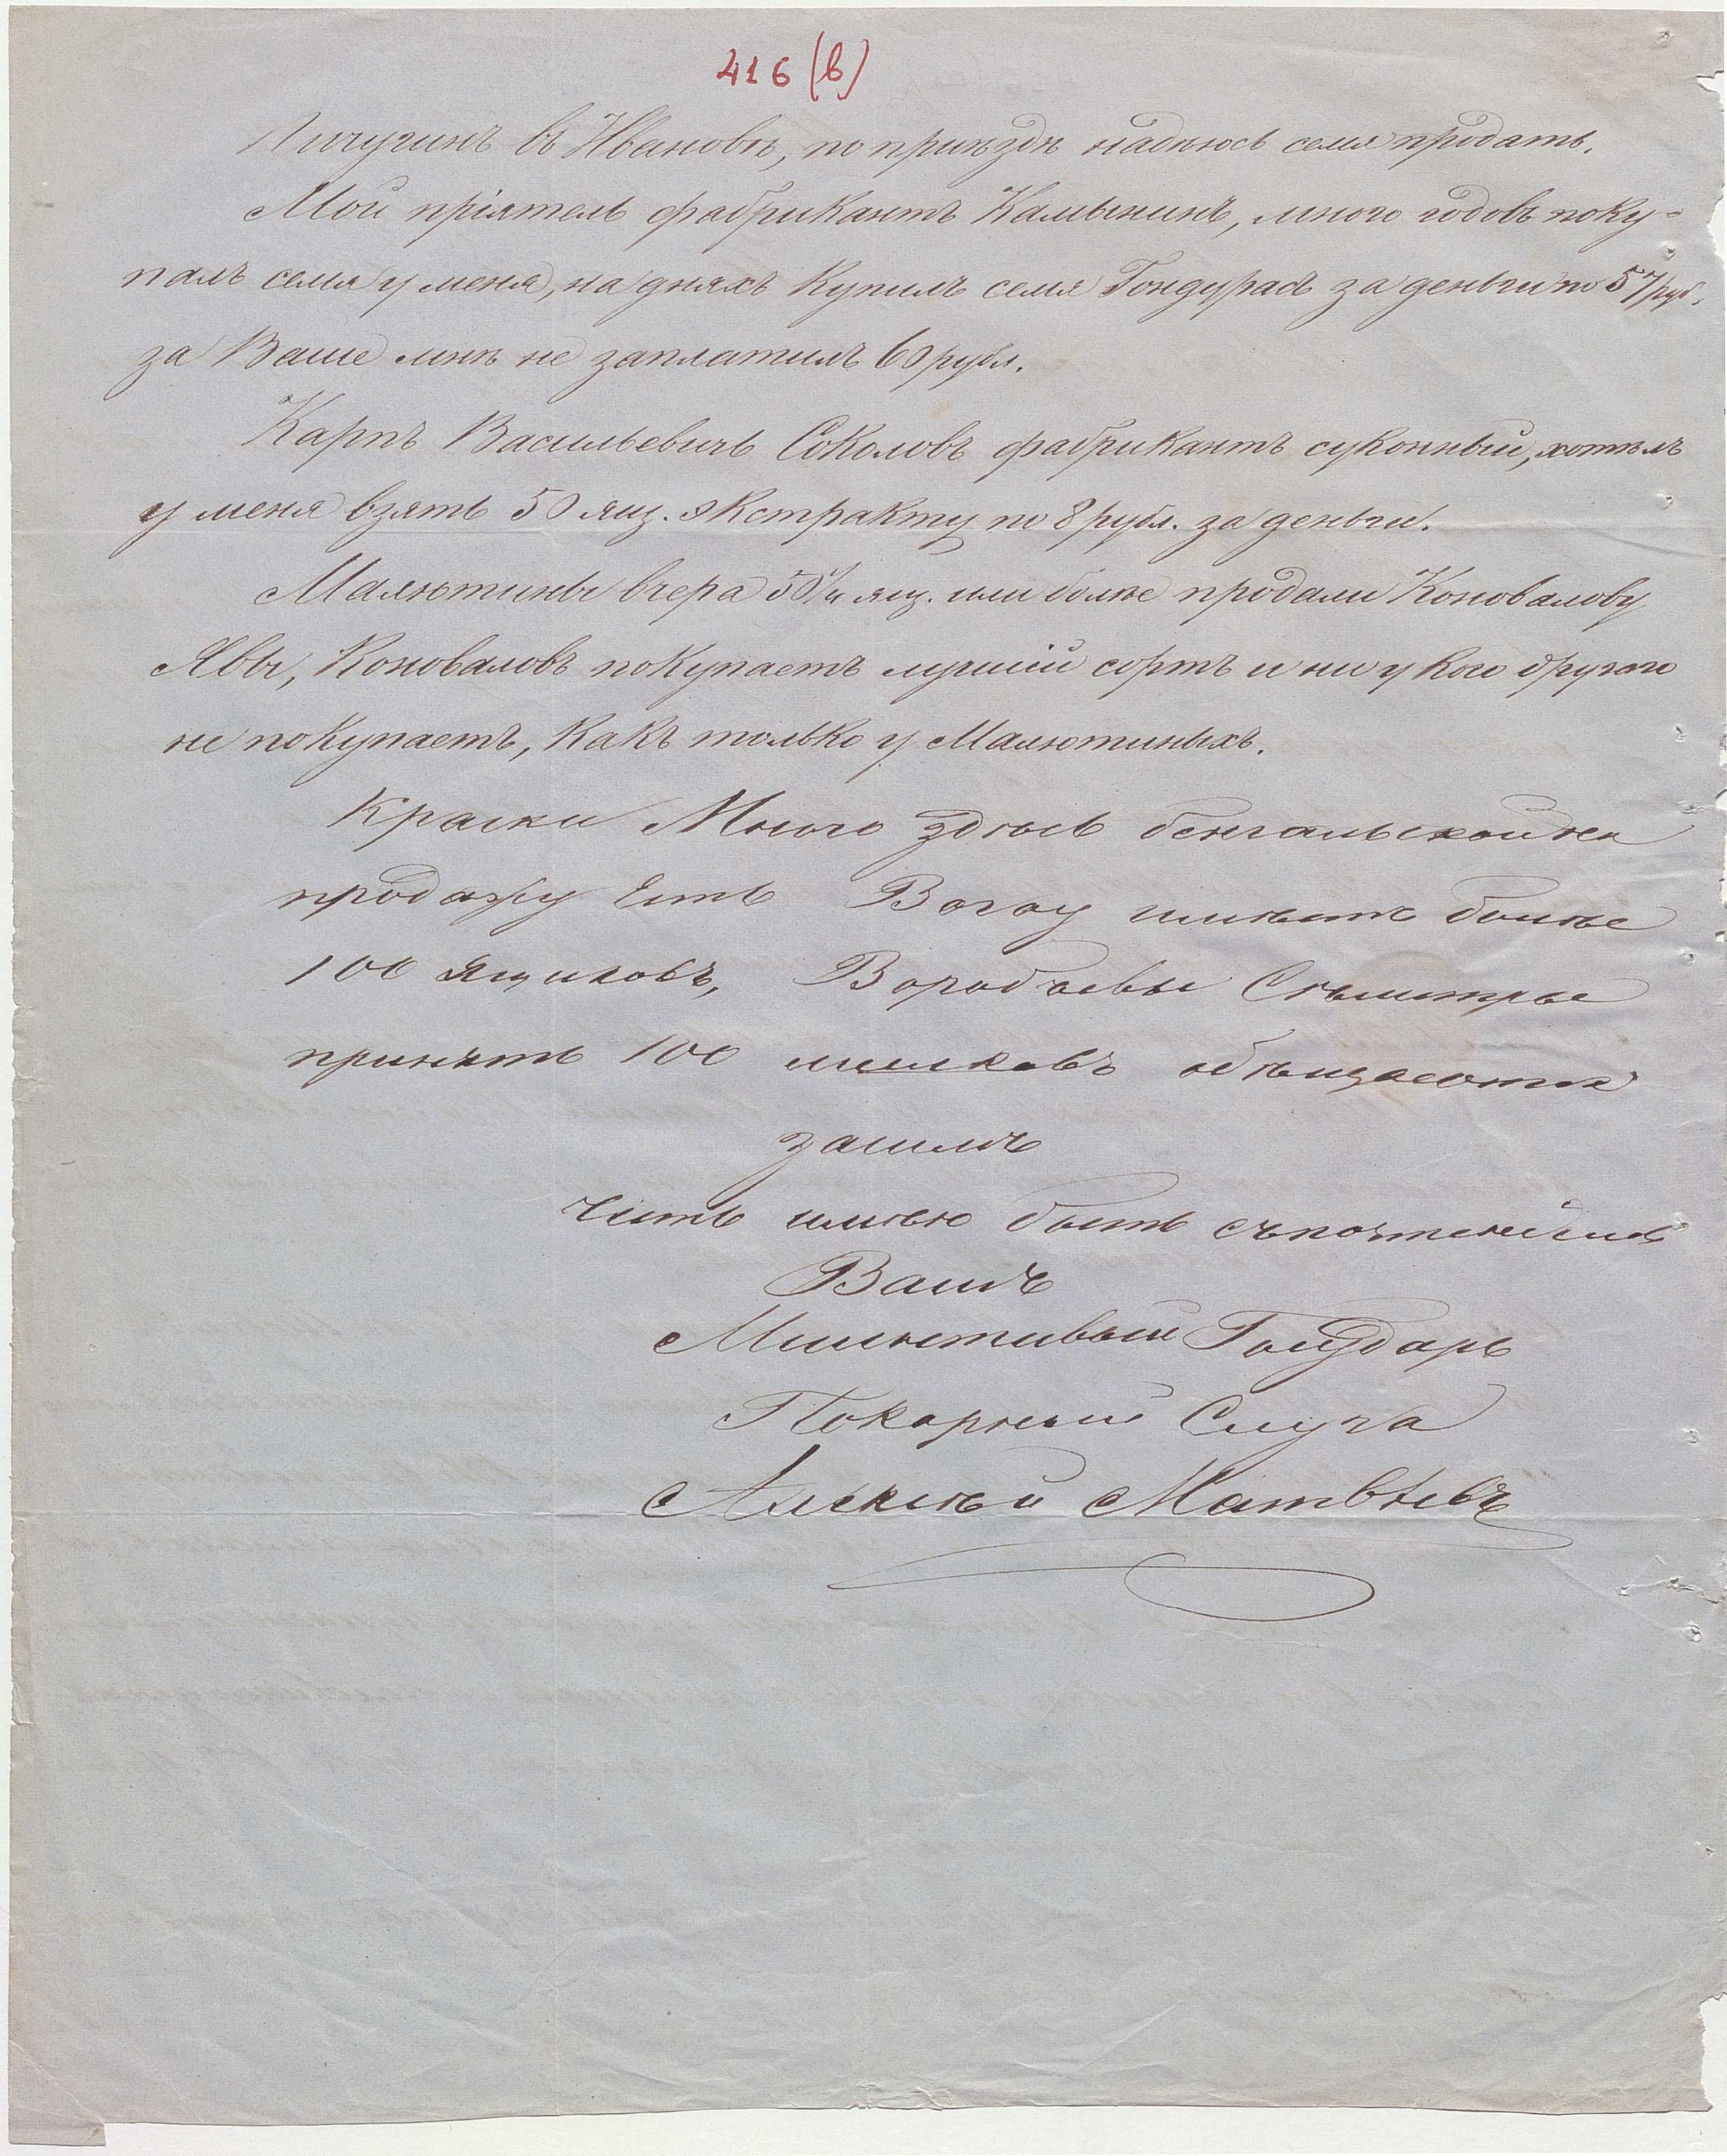 416 (в)
Пичугинъ въ Ивановѣ, по приѣздѣ надѣюсь семя продать.
Мой прiятель фабрикантъ Калынинъ, много годовъ поку-
палъ семя у меня, на дняхъ купилъ семя Гондурасъ за деньги по 57 руб.
за Ваше мнѣ не заплатилъ 60 рубл.
Карпъ Васильевичь Соколовъ фабрикантъ суконный, хотѣлъ
у меня взять 50 ящ. экстракту по 8 рубл. за деньги.
Малютины вчера 50 ящ. или болѣе продали Коновалову
Явы, Коноваловъ покупаетъ лучшiй сортъ и ни у кого другого
не покупаетъ, какъ только у Малютиныхъ.
Краски Много здѣсь бенгальской на
продажу Есть Вогоу имѣетъ болѣе
100 Ящиковъ, Воробьевы Сѣлитры
принять 100 мешковъ обѣщаются
Честь имѣю быть съ почтенiемъ
Вашъ
Милостивый Государь
Покорный Слуга
Алексѣй Матвѣевъ